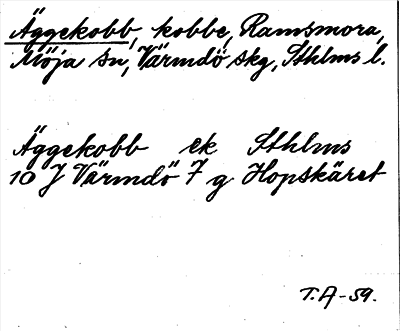 Äggekobb, kobbe, Ramsmora,
Möja sn, Värmdö skg, Sthlms l.
Äggekobb ek Sthlms
10 J Värmdö 7 g Hopskäret
T.A-59.